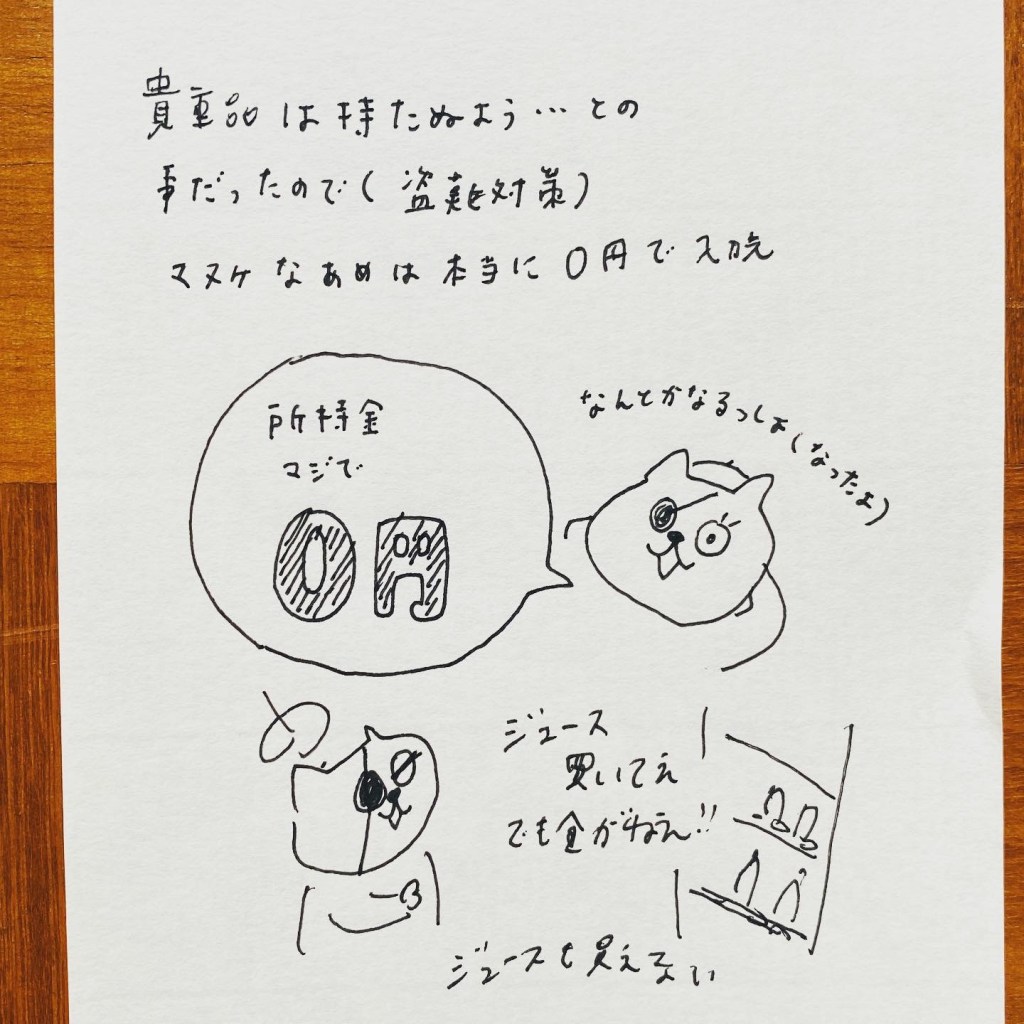 貴重品は持たぬよう…との
事だったので(盗難対策)
マヌケなあめは本当に0円で入院
なんとかなるっしょ(なったよ)
所持金
マジで
0円
ジュース
買いてえ
でも金がねえ!!
ジュースも買えない